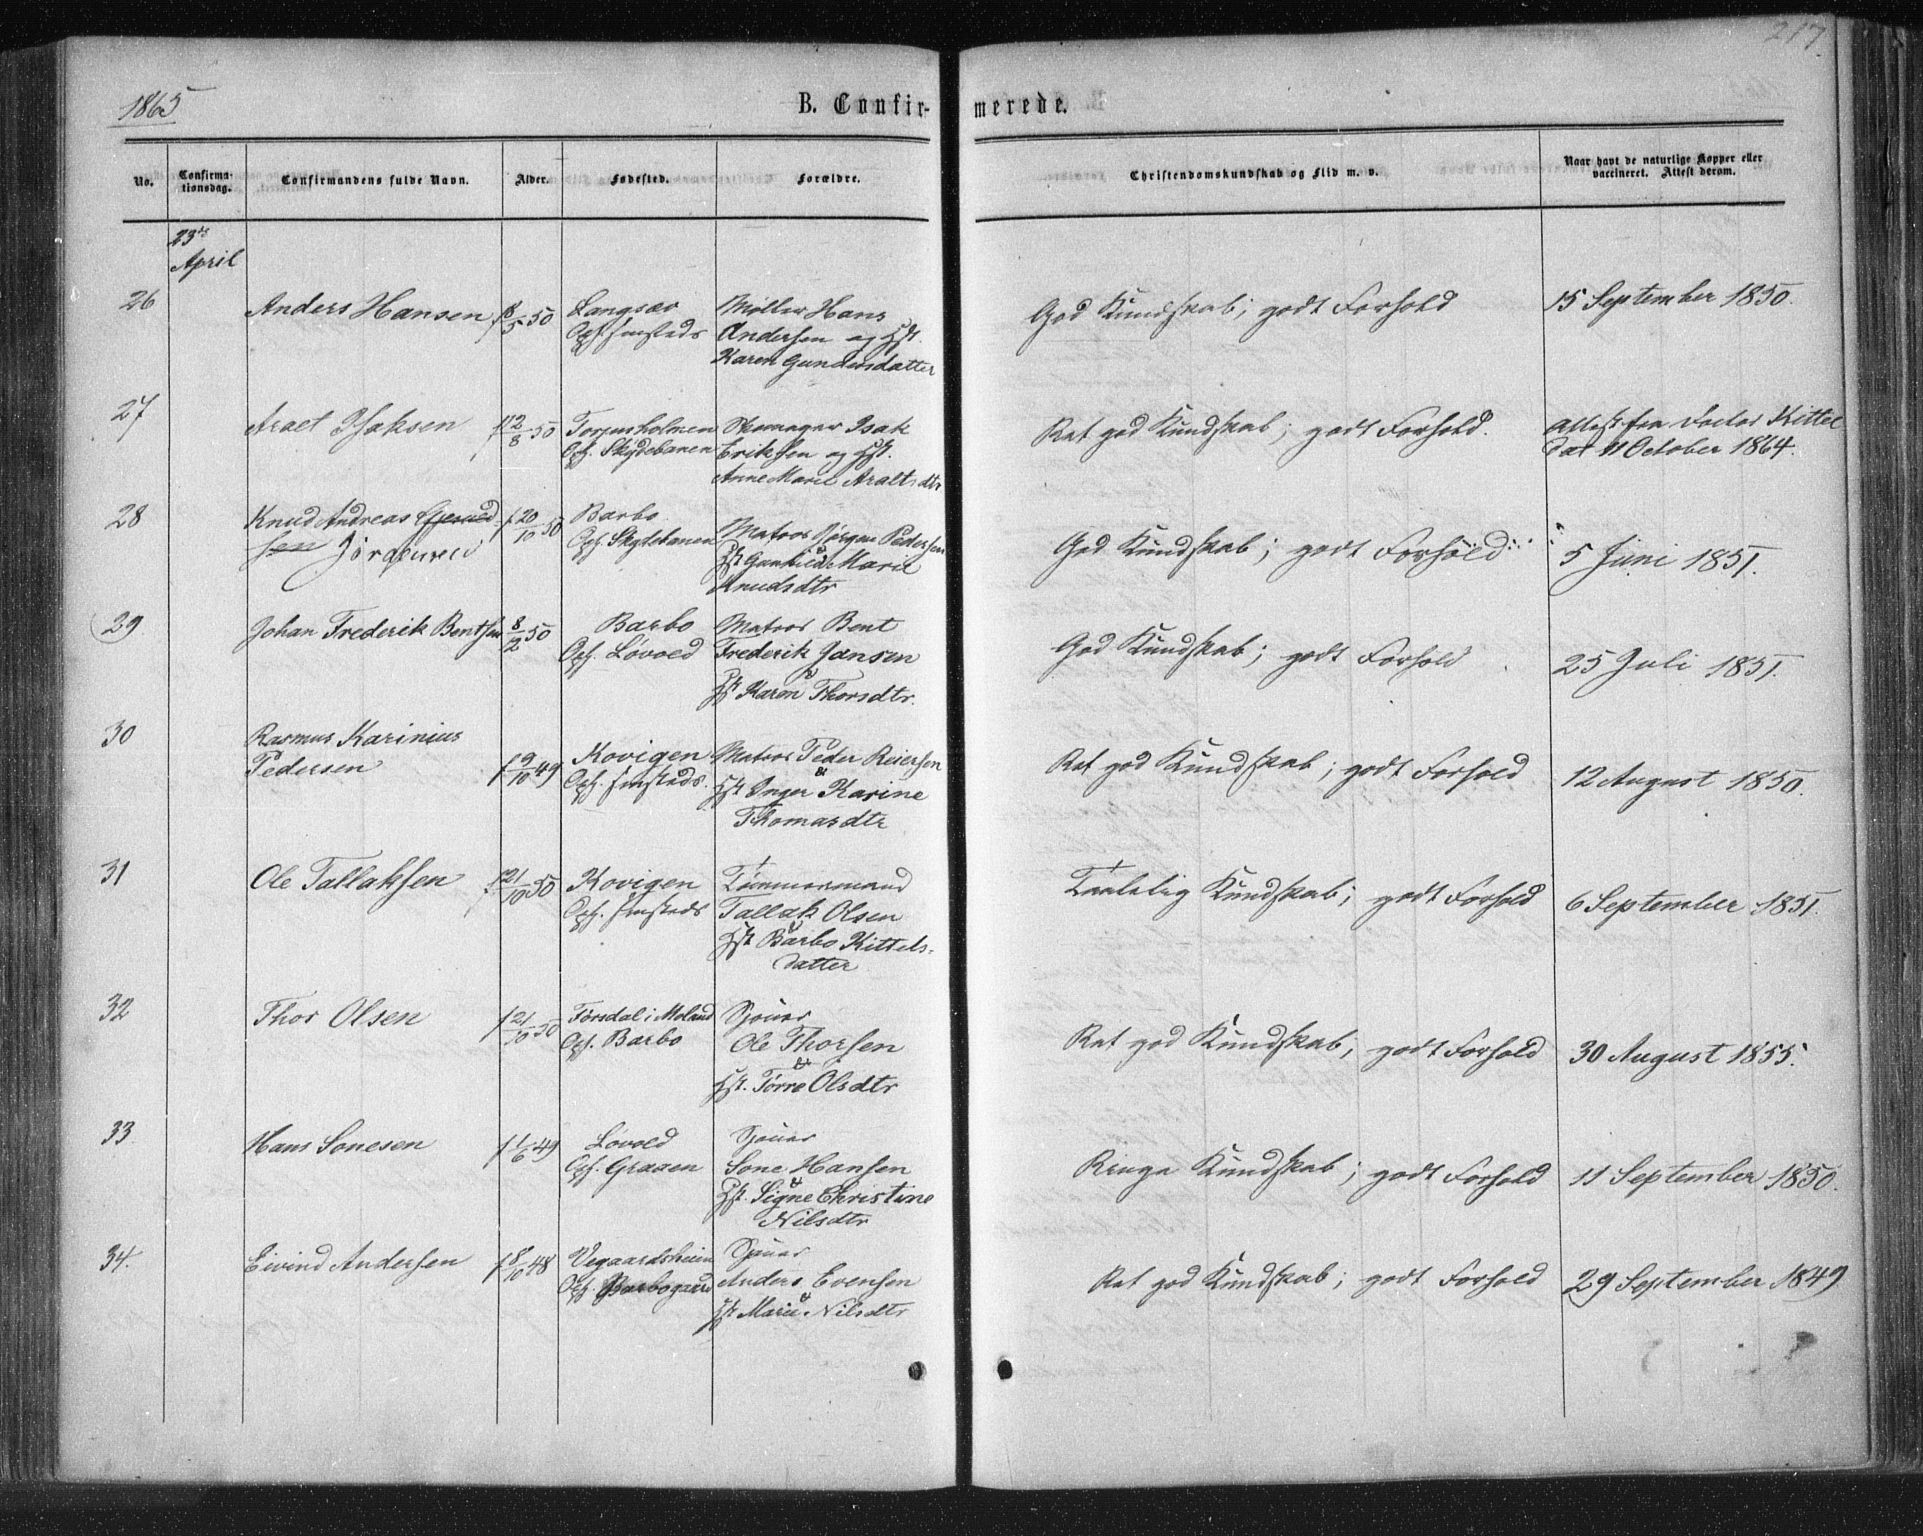 217.
1865
B. Confirmerede.
No.
Confirmationsdag.
Confirmandens fulde Navn.
Alder.
Fødested.
Forældre.
Christendomskundskab og Flid m. v.
Naar havt de naturlige Kopper eller vaccineret. Attest derom.
23de
April
26
Anders Hansen
f 8/5 50
Langsæv
Opf.
Møller Hans
Andersen og Hst.
Karen Gundersdatter
God Kundskab; godt Forhold
15 September 1850.
27
Aralt Isaksen
f 12/8 50
Torjusholmen
Opf. Skydebanen
Skomager Isak
Eriksen og Hst.
Anne Marie Araltsdtr
Ret god Kundskab; godt Forhold.
Attest fra Doctor Kittel
dat 11 October 1864.
28
Knud Andreas
sen Jørgensen
f 20/10 50
Barbo
Opf. Skydebanen
Matros Jørgen Pedersen
& Hst Gunhild Marie
Knudsdtr
God Kundskab; godt Forhold
5 Juni 1851.
29
Johan Frederik Bentsen
8/2 50
Barbo
Opf. Løvold
Matros Bent
Frederik Jansen
& Hst Karen Thorsdtr.
God Kundskab; godt Forhold
25 Juli 1851.
30
Rasmus Karinius
Pedersen
f 9/10 49
Kovigen
Opf.
Matros Peder Reiersen
& Hst Inger Karine
Thomasdtr
Ret god Kundskab; godt Forhold
12 August 1850.
31
Ole Tallaksen
f 21/10 50
Kovigen
Opf.
Tømmermand
Tallak Olsen
& Hst Barbo Kittels-
datter
Taalelig Kundskab; godt Forhold
6 September 1851.
32
Thor Olsen
f 21/10 50
Torsdal i Moland
Opf. Barbo
Sjouer
Ole Thorsen
& Hst. Tørre Olsdtr
Ret god Kundskab, godt Forhold
30 August 1855.
33
Hans Sonesen
f 1/6 49
Løvold
Opf. Graaen
Sjouer
Sone Hansen
& Hst. Signe Christine
Nilsdtr
Ringe Kundskab; godt Forhold
11 September 1850.
34.
Eivind Andersen
f 8/10 48
Vegaardsheien
Opf. Barbogaard
Sjouer
Anders Evensen
& Hst Marie Nilsdtr
Ret god Kundskab; godt Forhold
29 September 1849